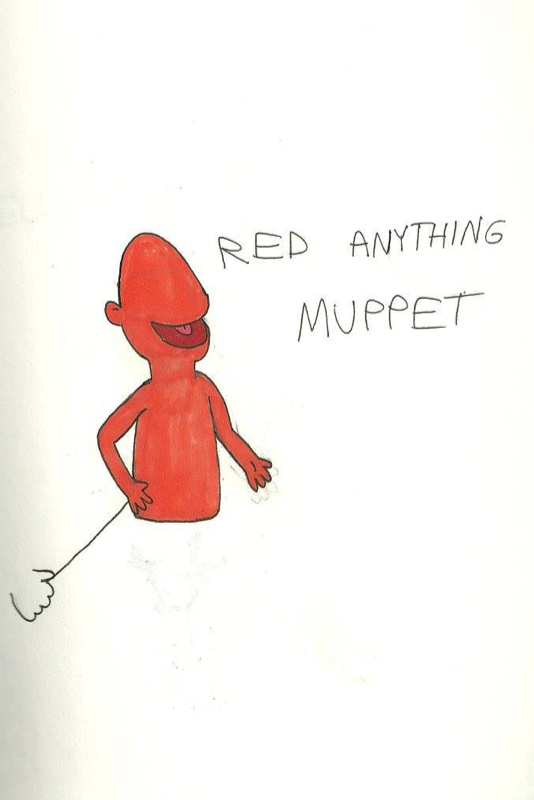 RED ANYTHING
MUPPET